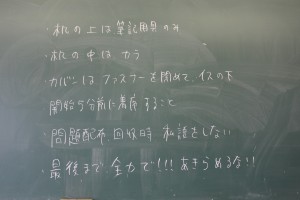 ・机の上は筆記用具のみ
・机の中はカラ
・カバンはファスナーを閉めて、イスの下
開始5分前に着席すること
・問題配布、回収時 私語をしない
・最後まで全力で!!! あきらめるな!!